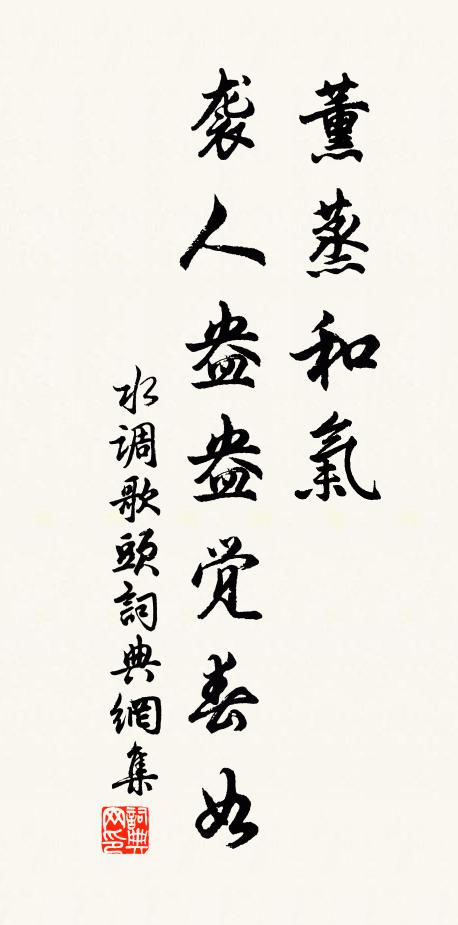 薰蒸和氣
袭人盎盎觉春如
水调歌頭詞典網集
詞典
网印